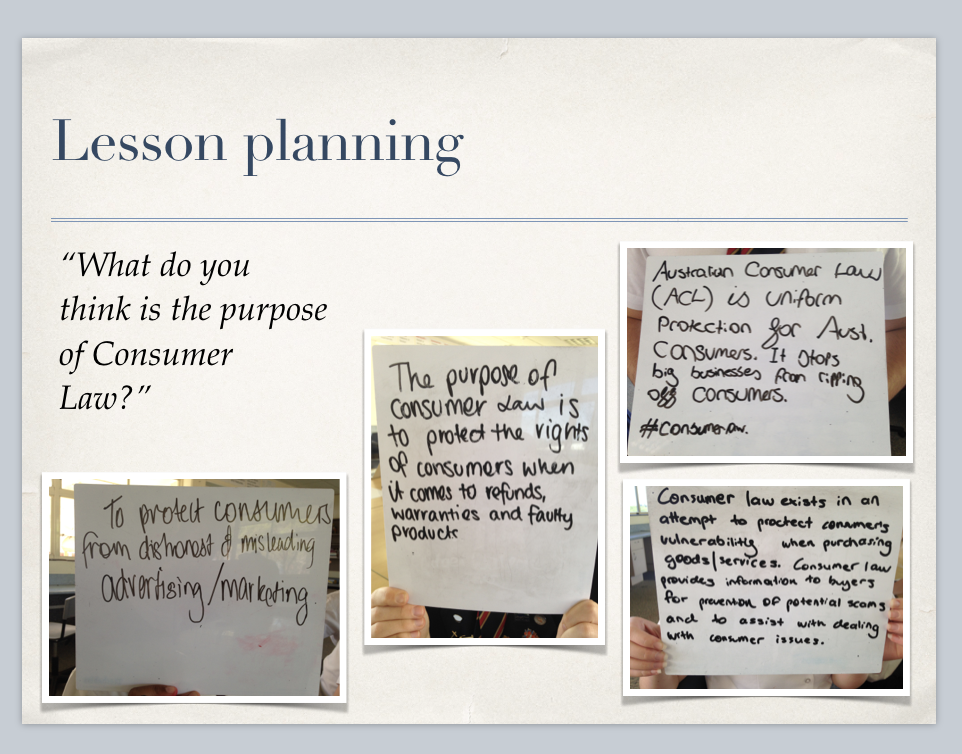 Lesson planning
“What do you
think is the purpose
of Consumer
Law?”
To protect consumers
from dishonest & misleading
advertising/marketing.
The purpose of
consumer Law is
to protect the rights
of consumers when
it comes to refunds,
warranties and faulty
products
Australian Consumer Law
(ACL) is uniform
Protection for Aust.
Consumers. It stops
big businesses from ripping
off consumers.
#Consumerlaw.
Consumer law exists in an
attempt to proctect consumers
vulnerability when purchasing
goods/services. Consumer law
provides information to buyers
for prevention of potential scams
and to assist with dealing
with consumer issues.